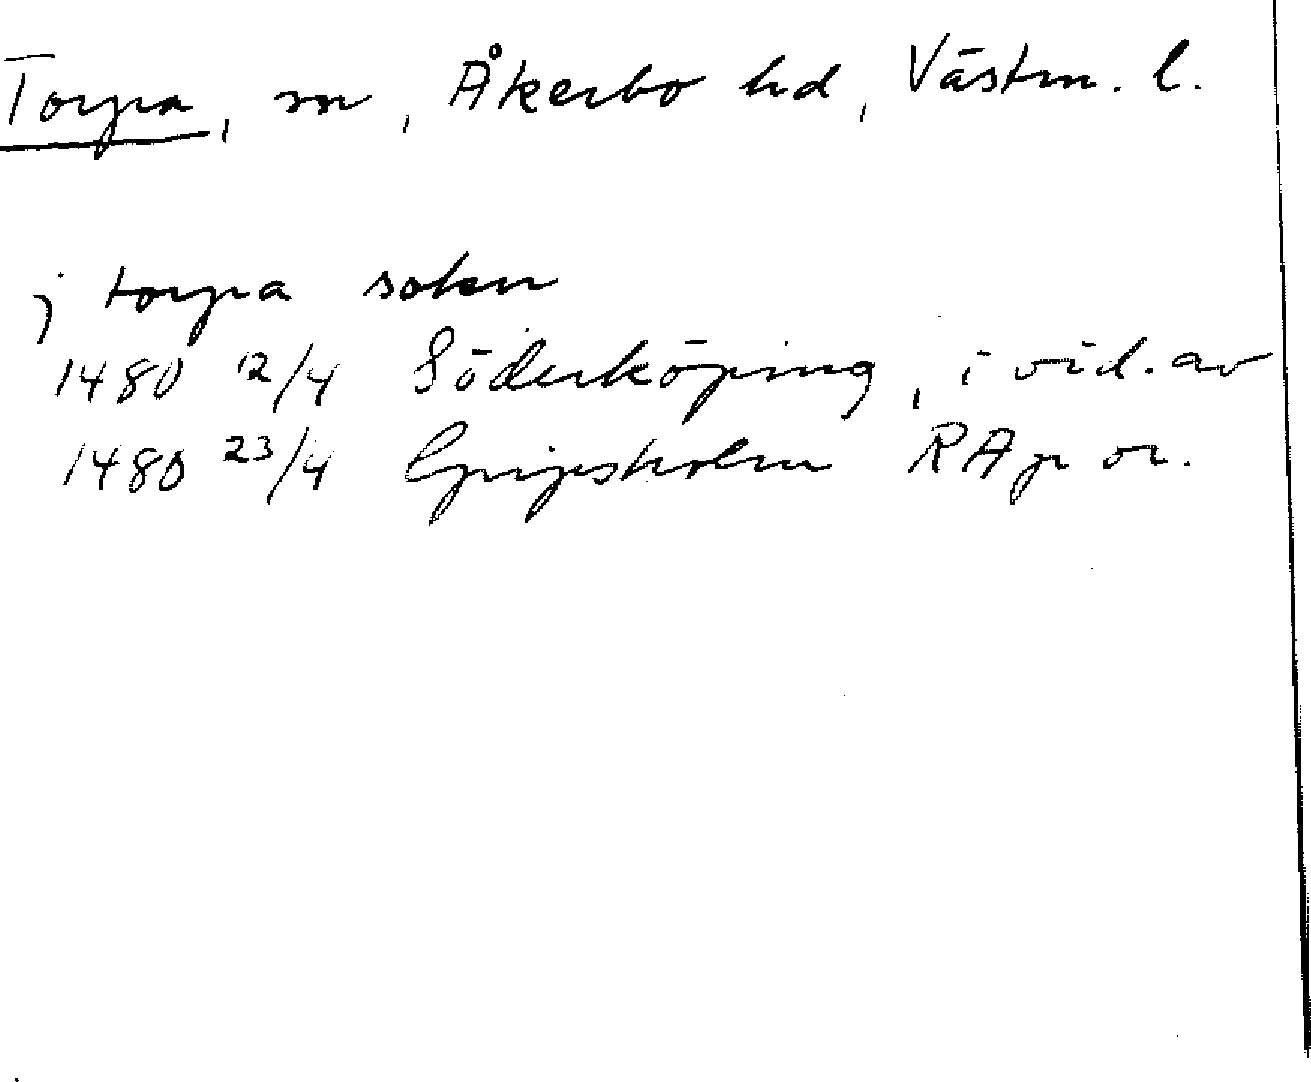 Torpa, sn, Åkerbo hd, Västm. l.
j torpa sokn
1480 12/4 Söderköping, i vid. av
1480 23/4 Gripsholm RAp or.